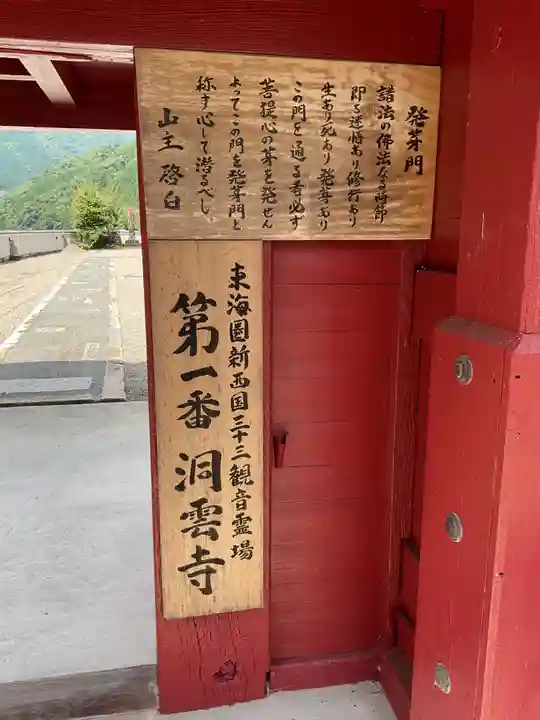 発芽門
諸法の佛法なる時節
即ち迷悟あり修行あり
生あり死あり発芽あり
この門を通る者必ず
菩提心の芽を発せん
よってこの門を発芽門と
称す心して潜るべし
山主啓白
東海圏新西国三十三観音霊場
第一番洞雲寺